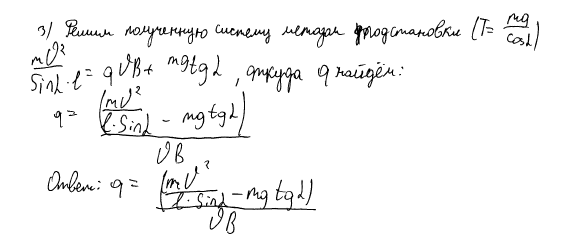 3) Решим полученную систему методом подстановки (T = mg/cosα)
mυ²/(sinα·l) = qυB + mg tgα, откуда q найдём:
q = (mυ²/(l·sinα) − mg tgα)/(υB)
Ответ: q = (mυ²/(l·sinα) − mg tgα)/(υB)